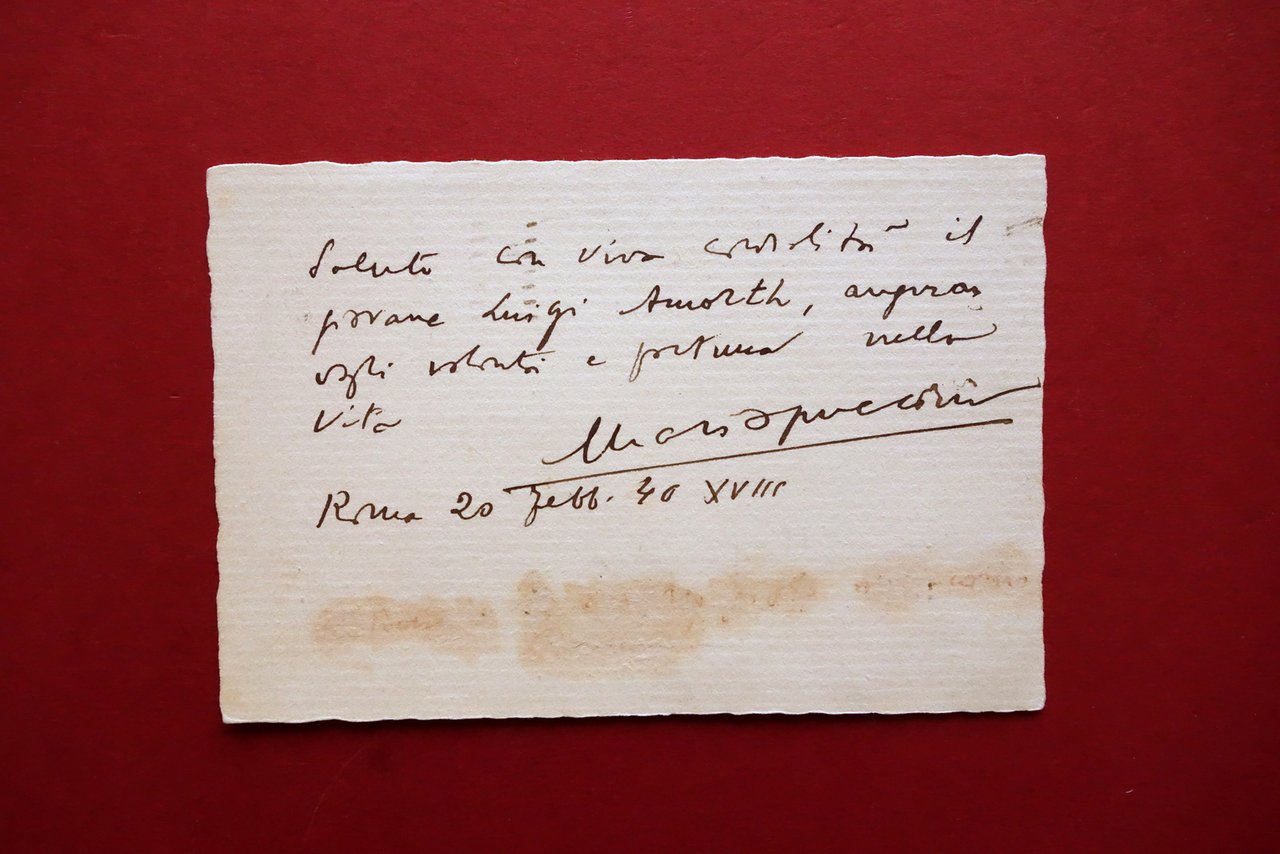 Saluto con viva cordialità il
giovane Luigi Amorth, auguran
dogli volontà e fortuna nella
vita
Mario Puccini
Roma 20 Febb. 40 XVIII